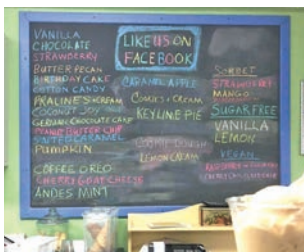 VANILLA
CHOCOLATE
STRAWBERRY
BUTTER PECAN
BIRTHDAY CAKE
COTTON CANDY
PRALINES + CREAM
COCONUT JOY
GERMAN CHOCOLATE CAKE
PEANUT BUTTER CHIP
SALTED CARAMEL
PUMPKIN
COFFEE OREO
CHERRY GOAT CHEESE
ANDES MINT
LIKE US ON
FACEBOOK
CARAMEL APPLE
COOKIES + CREAM
KEY LIME PIE
COOKIE DOUGH
LEMON CREAM
SORBET
STRAWBERRY
MANGO
SUGAR FREE
VANILLA
LEMON
VEGAN